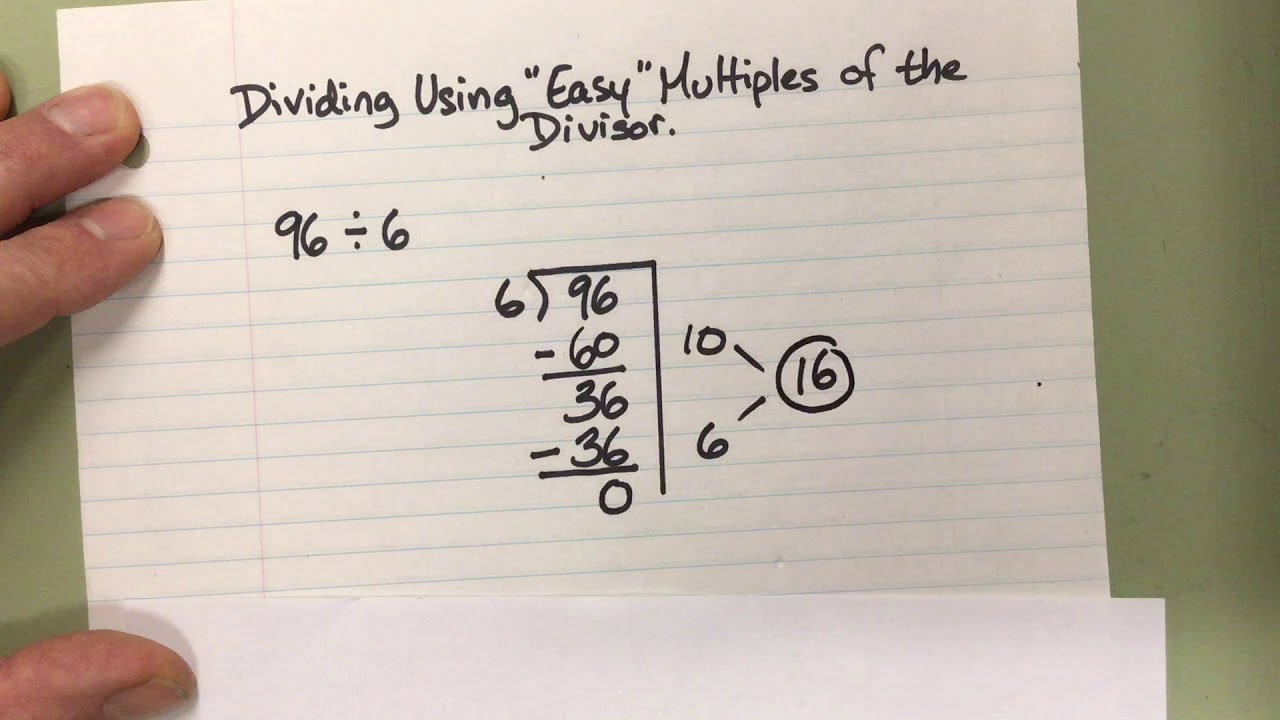 Dividing Using "Easy" Multiples of the
Divisor.
96 ÷ 6
6 ) 96
- 60 10
36 16
- 36 6
0